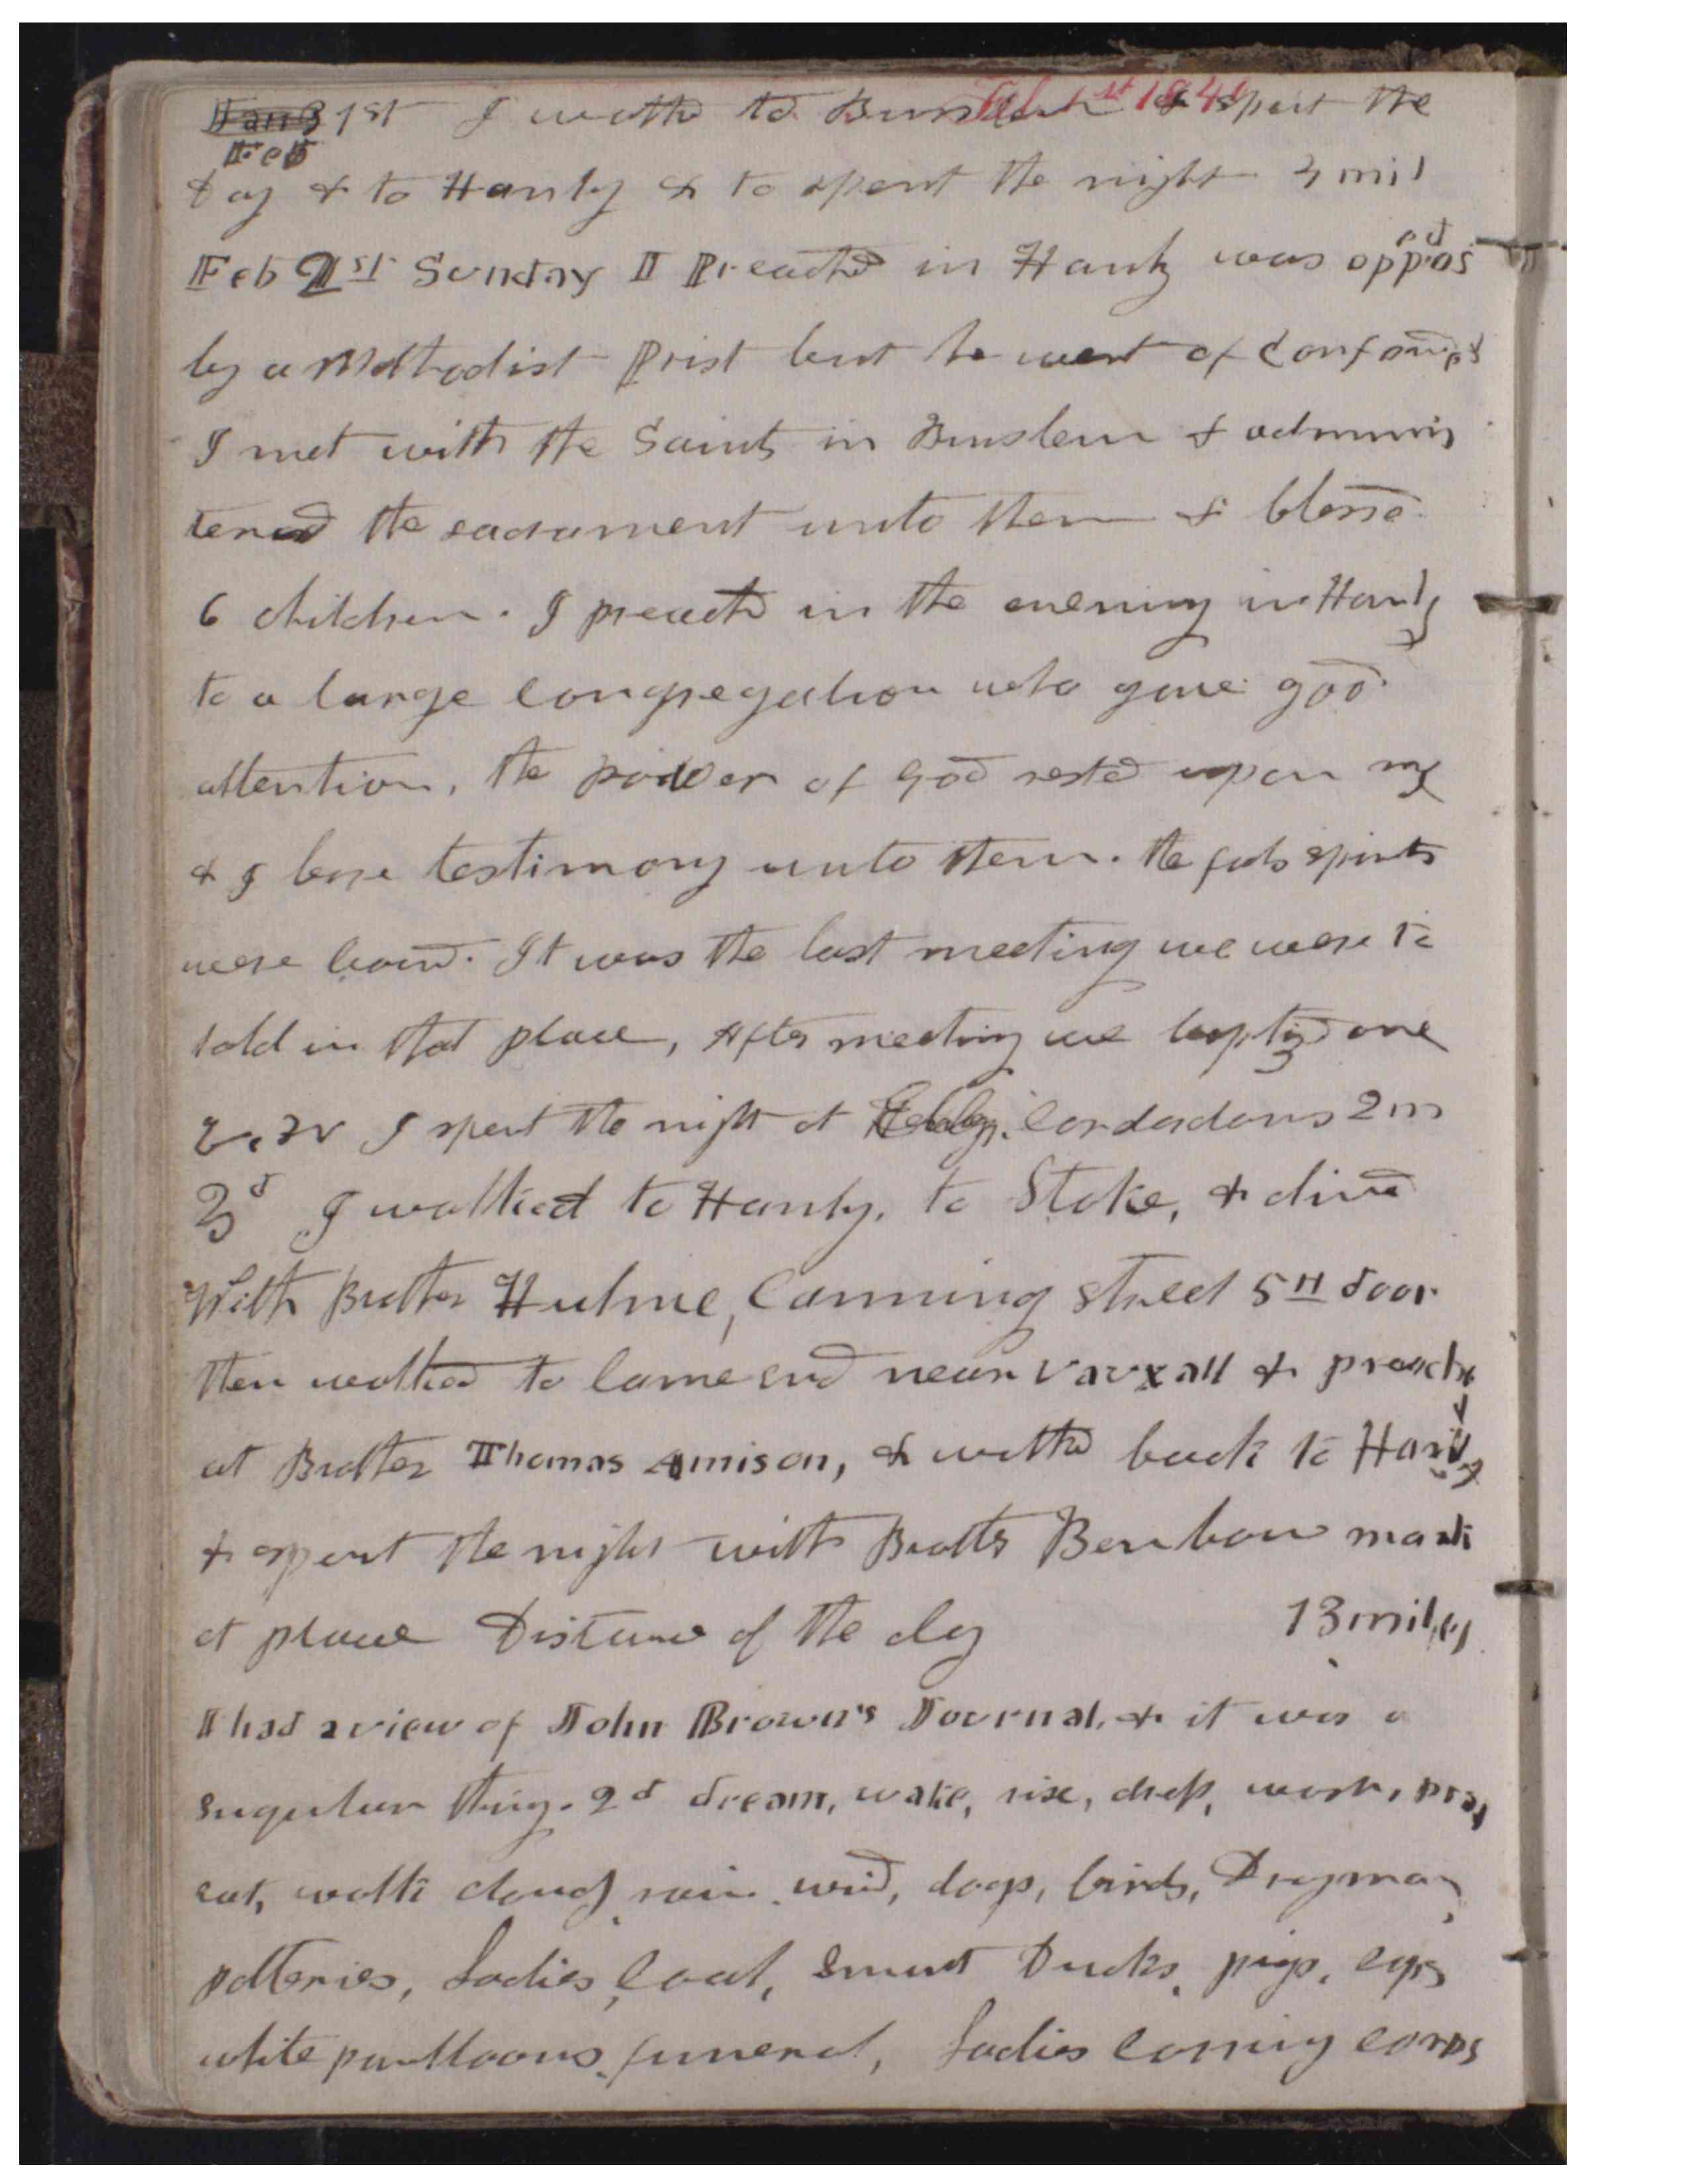 Feb 1st 1840
Jan 31st I walkd to Burslem & spent the
Feb
day & to Hanly & to spent the night 3 mil
Feb 2st Sunday I Preachd in Hanly was opposed
by a Methodist Prist but he went of confounded
I met with the Saints in Burslem & adminis
tered the sacrament unto them & blessd
6 children. I preachd in the evening in Hanly
to a large congregation who gave good
attention, the power of God rested upon me
& I bore testimony unto them. the spirits
were bound. It was the last meeting we were to
hold in that place, After meeting we baptizd one
I spent the night at 2 m
3d I walked to Hanly, to Stoke, & dined
With Brother Hulme, Canning street 5th door
then walked to Lane end near Vauxall & preachd
at Brother Thomas Amison, & walkd back to Hanly
& spent the night with Brother Benbow mark
et place Distance of the day 13 miles
I had a view of John Brown's Journal, & it was a
singular thing. 2d dream, wake, rise, dress, wash, pray
eat, walk cloudy rain wind, dogs, birds, Drayman
potteries, Ladies, Coal, Smut Ducks, pigs,
white pantloons funeral, Ladies corps